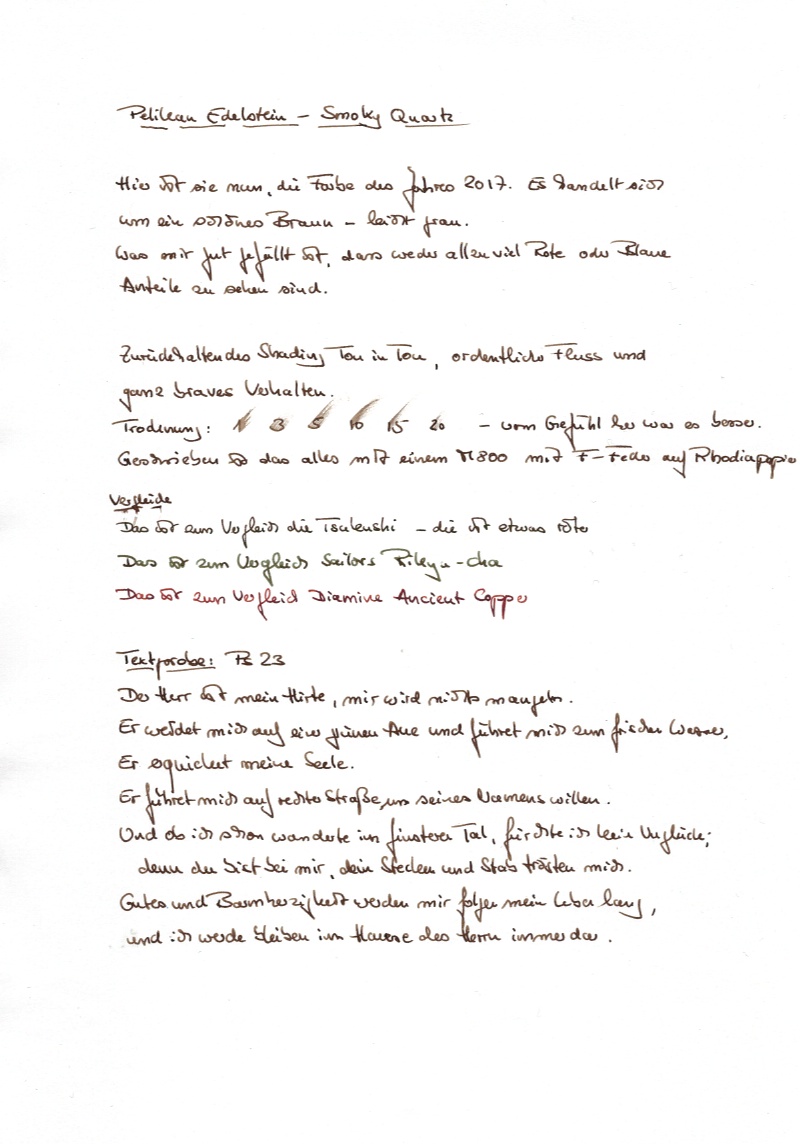 Pelikan Edelstein – Smoky Quartz
Hier ist sie nun, die Farbe des Jahres 2017. Es handelt sich
um ein schönes Braun – leicht grau.
Was mir gut gefällt ist, dass weder allzu viel Rote oder Blaue
Anteile zu sehen sind.
Zurückhaltendes Shading Ton in Ton, ordentlicher Fluss und
ganz braves Verhalten.
Trocknung: 1 3 5 10 15 20 – vom Gefühl her war es besser.
Geschrieben ist das alles mit einem M800 mit F-Feder auf Rhodiapapier
Vergleiche
Das ist zum Vergleich die Tsukushi – die ist etwas röter
Das ist zum Vergleich Sailors Rikyu-cha
Das ist zum Vergleich Diamine Ancient Copper
Textprobe: Ps 23
Der Herr ist mein Hirte, mir wird nichts mangeln.
Er weidet mich auf einer grünen Aue und führet mich zum frischen Wasser,
Er erquicket meine Seele.
Er führet mich auf rechter Straße, um seines Namens willen.
Und ob ich schon wanderte im finsteren Tal, fürchte ich kein Unglück;
denn du bist bei mir, dein Stecken und Stab trösten mich.
Gutes und Barmherzigkeit werden mir folgen mein Leben lang,
und ich werde bleiben im Hause des Herrn immerdar.